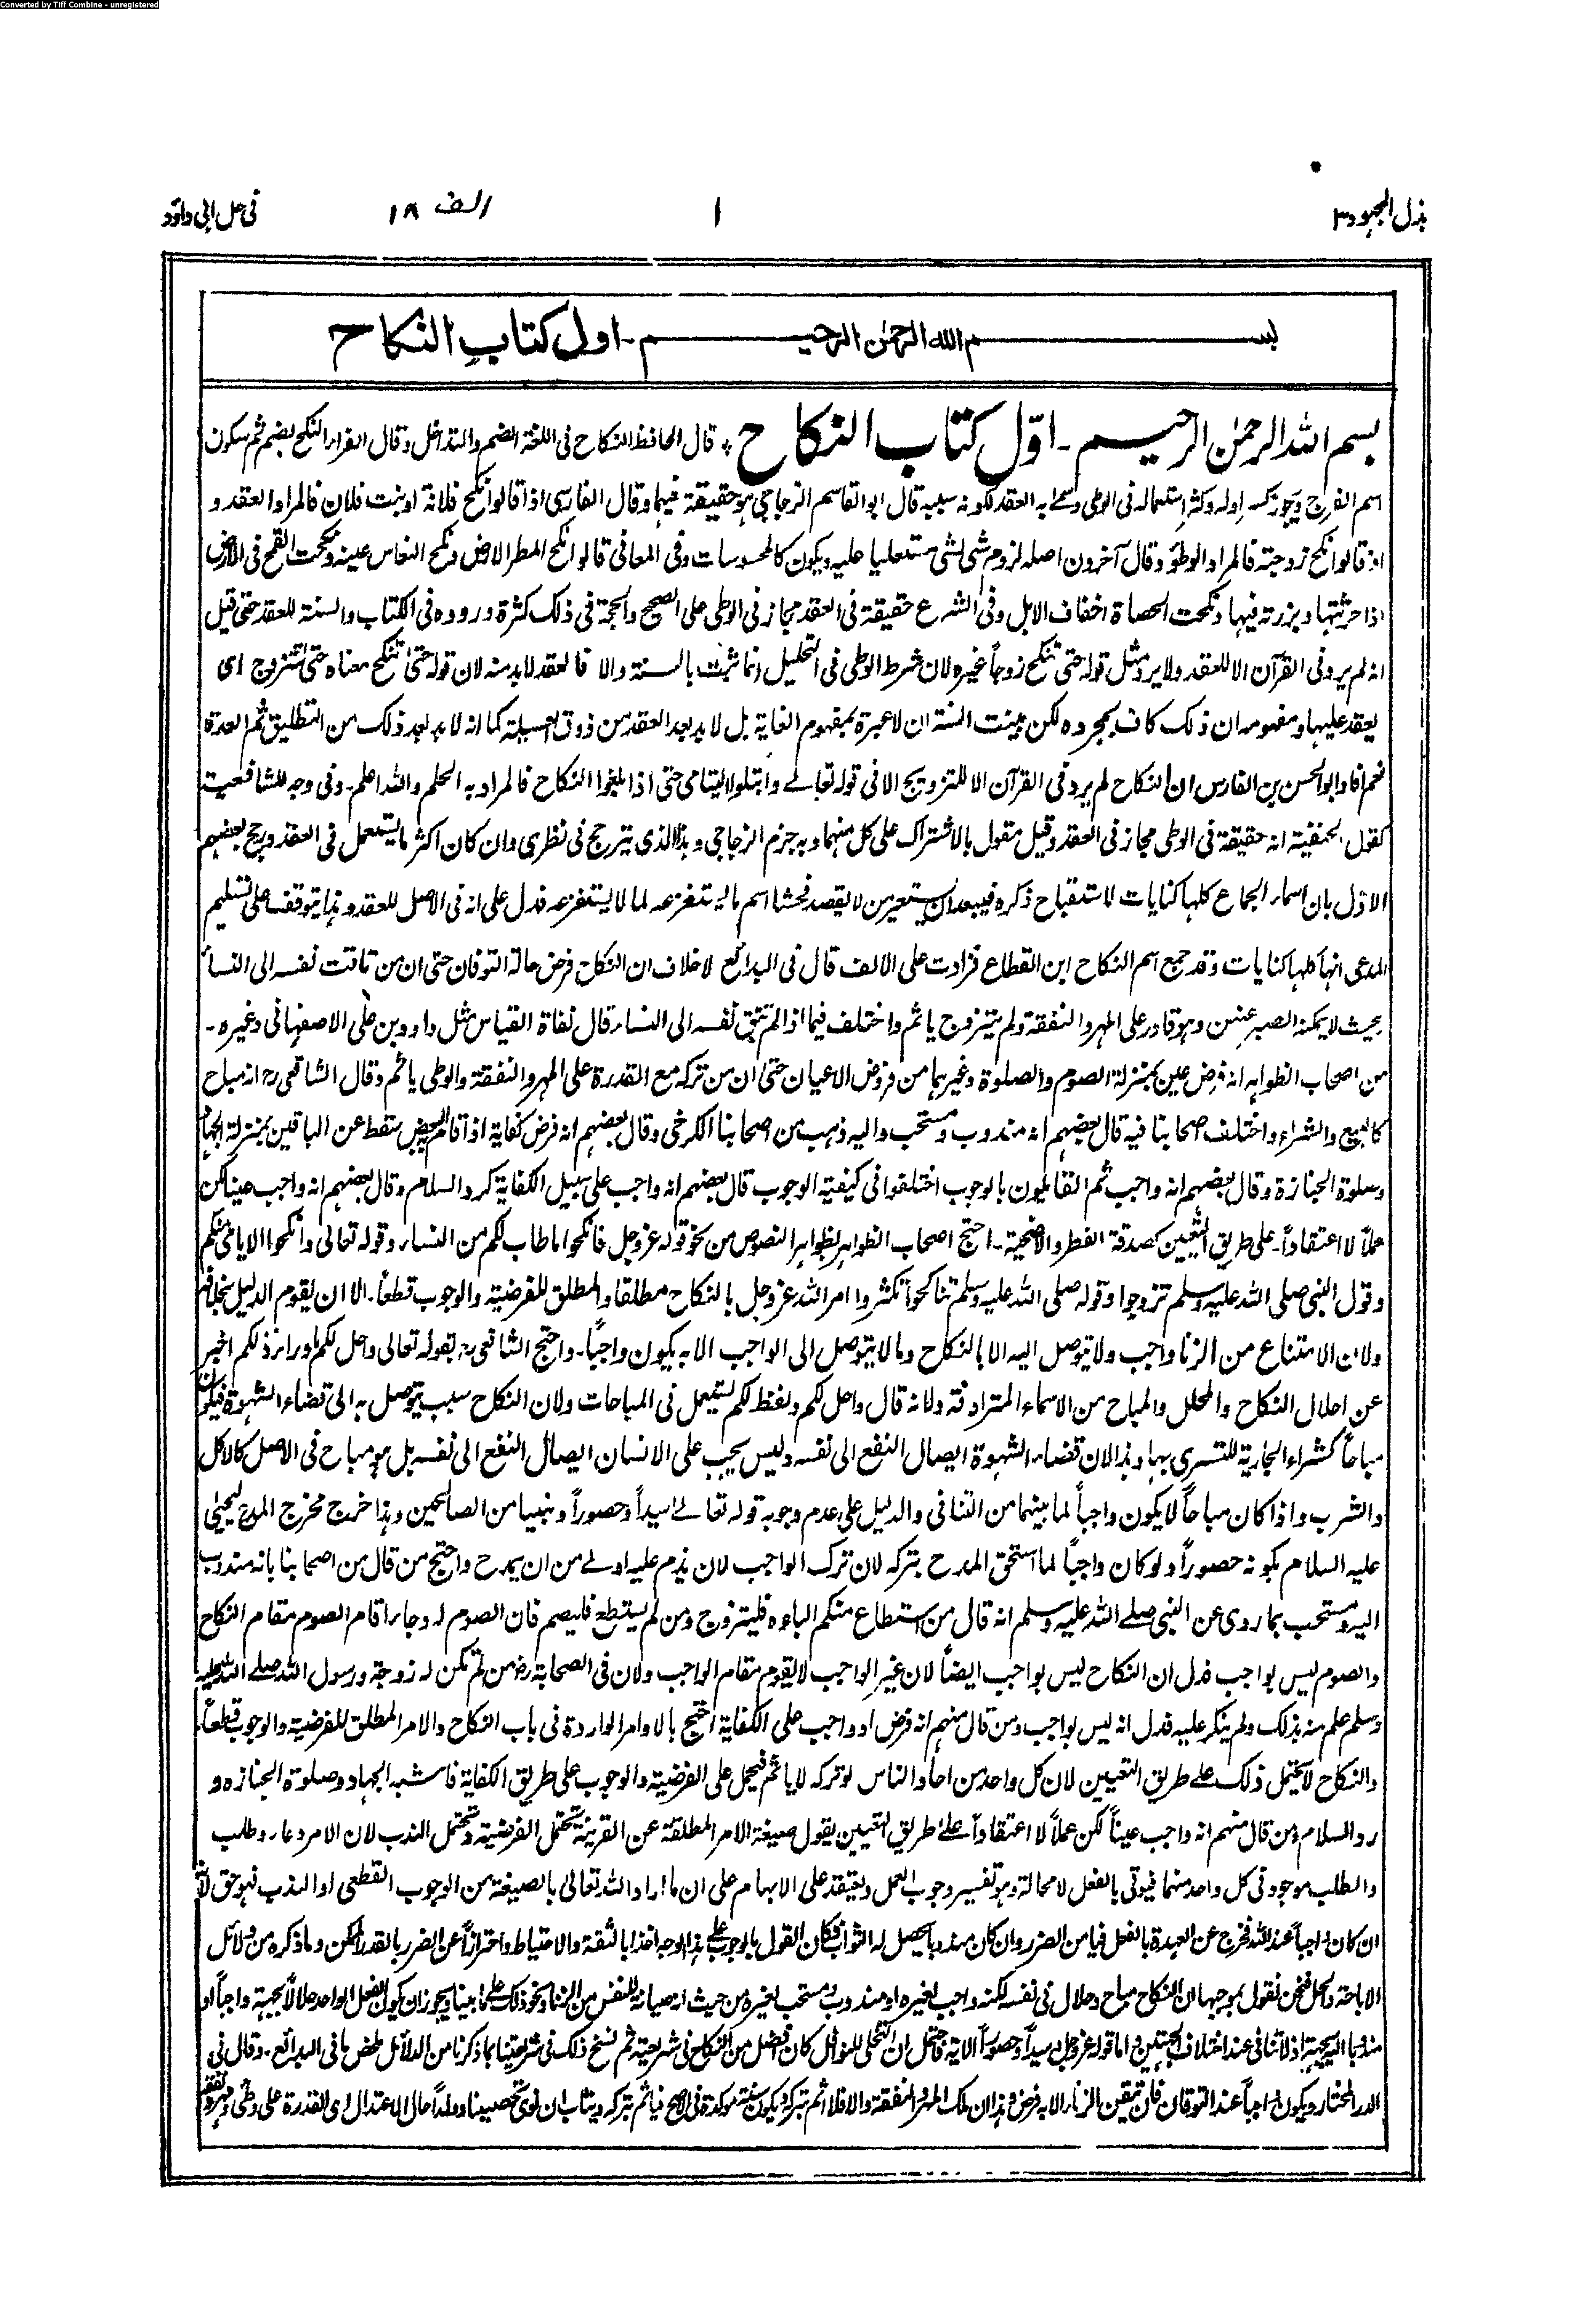 Converted by Tiff Combine - unregistered
بذل المجهود ٣
١
الف ١٨
فى حل ابى داؤد
بسم الله الرحمن الرحيم - اول كتاب النكاح
بسم الله الرحمن الرحيم - اوّل كتاب النكاح ٭ قال الحافظ النكاح فى اللغة الضم والتداخل وقال الفراء النكح بضم ثم سكون
اسم الفرج ويجوز كسر اوله وكثر استعماله فى الوطى وسمى به العقد لكونه سببه قال ابو القاسم الزجاجى هو حقيقة فيهما وقال الفارسى اذا قالوا نكح فلانة او بنت فلان فالمراد العقد و
اذ قالوا نكح زوجته فالمراد الوطؤ وقال آخرون اصله لزوم شى لشى مستعليا عليه ويكون كالمحسوسات وفى المعانى قالوا نكح المطر الارض ونكح النعاس عينه ونكحت القمح فى الارض
اذا حرثتها وبزرته فيها ونكحت الحصاة اخفاف الابل وفى الشرع حقيقة فى العقد مجاز فى الوطى على الصحيح والحجة فى ذلك كثرة وروده فى الكتاب والسنة للعقد حتى قيل
انه لم يرو فى القرآن الا للعقد ولا يرد مثل قوله حتى تنكح زوجاً غيره لان شرط الوطى فى التحليل انما ثبت بالسنة والا فالعقد لا بد منه لان قوله حتى تنكح معناه حتى تتزوج اى
يعقد عليها ومفهومه ان ذلك كاف بمجرده لكن بينت السنة ان لا عبرة بمفهوم الغاية بل لا بد بعد العقد من ذوق العسيلة كما انه لا بد بعد ذلك من التطليق ثم العدة
نعم افاد ابو الحسن بن الفارس ان النكاح لم يرد فى القرآن الا للتزويج الا فى قوله تعالى وابتلوا اليتامى حتى اذا بلغوا النكاح فالمراد به الحلم والله اعلم - وفى وجه للشافعية
كقول الحنفية انه حقيقة فى الوطى مجاز فى العقد وقيل مقول بالاشتراك على كل منهما وبه جزم الزجاجى وهذا الذى يترجح فى نظرى وان كان اكثر ما يستعمل فى العقد ورجح بعضهم
الاوّل بان اسماء الجماع كلها كنايات لاستقباح ذكره فيبعد ان يستعير من لا يقصد فحشا اسم ما يستفزعه لما لا يستفزعه فدل على انه فى الاصل للعقد وهذا يتوقف على تسليم
المدعى انها كلها كنايات وقد جمع اسم النكاح ابن القطاع فزادت على الالف قال فى البدائع لا خلاف ان النكاح فرض حالة التوقان حتى ان من تاقت نفسه الى النساء
بحيث لا يمكنه الصبر عنهن وهو قادر على المهر والنفقة ولم يتزوج ياثم واختلف فيما اذا لم تتق نفسه الى النساء قال نفاة القياس مثل داود بن على الاصفهانى وغيره -
من اصحاب الظواهر انه فرض عين بمنزلة الصوم والصلوة وغيرهما من فروض الاعيان حتى ان من تركه مع القدرة على المهر والنفقة والوطى ياثم وقال الشافعى رح انه مباح
كالبيع والشراء واختلف اصحابنا فيه قال بعضهم انه مندوب ومستحب واليه ذهب من اصحابنا الكرخى وقال بعضهم انه فرض كفاية اذا قام به البعض سقط عن الباقين بمنزلة الجهاد
وصلوة الجنازة وقال بعضهم انه واجب ثم القايلون بالوجوب اختلفوا فى كيفية الوجوب قال بعضهم انه واجب على سبيل الكفاية كرد السلام وقال بعضهم انه واجب عينا لكن
عملاً لا اعتقاداً - على طريق التعيين كصدقة الفطر والاضحية - احتج اصحاب الظواهر بظواهر النصوص من نحو قوله عز وجل فانكحوا ما طاب لكم من النساء وقوله تعالى وانكحوا الايامى منكم
وقول النبى صلى الله عليه وسلم تزوجوا وقوله صلى الله عليه وسلم تناكحوا تكثروا امر الله عز وجل بالنكاح مطلقا والامر المطلق للفرضية والوجوب قطعاً - الا ان يقوم الدليل بخلافه
ولان الامتناع من الزنا واجب ولا يتوصل اليه الا بالنكاح وما لا يتوصل الى الواجب الا به يكون واجباً - واحتج الشافعى رح بقوله تعالى واحل لكم ما وراء ذلكم اخبر
عن احلال النكاح والمحلل والمباح من الاسماء المترادفة ولانه قال واحل لكم ولفظ لكم يستعمل فى المباحات ولان النكاح سبب يتوصل به الى قضاء الشهوة فيكون
مباحاً كشراء الجارية للتسرى بها وهذا لان قضاء الشهوة ايصال النفع الى نفسه وليس يجب على الانسان ايصال النفع الى نفسه بل هو مباح فى الاصل كالاكل
والشرب واذا كان مباحاً لا يكون واجباً لما بينهما من التنافى والدليل على عدم وجوبه قوله تعالى وسيداً وحصوراً ونبيا من الصالحين وهذا خرج مخرج المدح ليحيى
عليه السلام بكونه حصوراً ولو كان واجباً لما استحق المدح بتركه لان ترك الواجب لان يذم عليه اولى من ان يمدح واحتج من قال من اصحابنا بانه مندوب
اليه ومستحب بما روى عن النبى صلى الله عليه وسلم انه قال من استطاع منكم الباءة فليتزوج ومن لم يستطع فليصم فان الصوم له وجاء اقام الصوم مقام النكاح
والصوم ليس بواجب فدل ان النكاح ليس بواجب ايضاً لان غير الواجب لا يقوم مقام الواجب ولان فى الصحابة رض من لم تكن له زوجة ورسول الله صلى الله عليه
وسلم علم منه بذلك ولم ينكر عليه فدل انه ليس بواجب ومن قال منهم انه فرض او واجب على الكفاية احتج بالاوامر الواردة فى باب النكاح والامر المطلق للفرضية والوجوب قطعاً
والنكاح لا يحتمل ذلك على طريق التعيين لان كل واحد من آحاد الناس لو تركه لا ياثم فيحمل على الفرضية والوجوب على طريق الكفاية فاشبه الجهاد وصلوة الجنازة و
رد السلام ومن قال منهم انه واجب عيناً لكن عملاً لا اعتقاداً على طريق التعيين يقول صيغة الامر المطلقة عن القرينة تحتمل الفرضية وتحتمل الندب لان الامر دعاء وطلب
والطلب موجود فى كل واحد منهما فيوتى بالفعل لا محالة وهو تفسير وجوب العمل ويعتقد على الابهام على ان ما اراد الله تعالى بالصيغة من الوجوب القطعى او الندب فهو حق لانه
ان كان واجباً عند الله فخرج عن العهدة بالفعل فيامن الضرر وان كان مندوبا يحصل له الثواب فكان القول بالوجوب على هذا الوجه اخذا بالثقة والاحتياط واحترازاً عن الضرر بالقدر الممكن وما ذكره من دلائل
الاباحة والحل فنحن نقول بموجبها ان النكاح مباح وحلال فى نفسه لكنه واجب لغيره او مندوب ومستحب لغيره من حيث انه صيانة للنفس من الزنا ونحو ذلك على ما بينا ويجوز ان يكون الفعل الواحد حلالاً بجهة واجباً او
مندوبا اليه بجهة اذ لا تنافى عند اختلاف الجهتين واما قوله عز وجل وسيداً وحصوراً الاية فاحتمل ان التخلى للنوافل كان افضل من النكاح فى شريعته ثم نسخ ذلك فى شريعتنا بما ذكرنا من الدلائل ملخص ما فى البدائع - وقال فى
الدر المختار ويكون واجباً عند التوقان فان تيقن الزنا الا به فرض وهذا ان ملك المهر والنفقة والا فلا اثم بتركه ويكون سنة موكدة فى الاصح فياثم بتركه ويثاب ان نوى تحصينا وولداً حال الاعتدال اى القدرة على وطى ومهر ونفقة